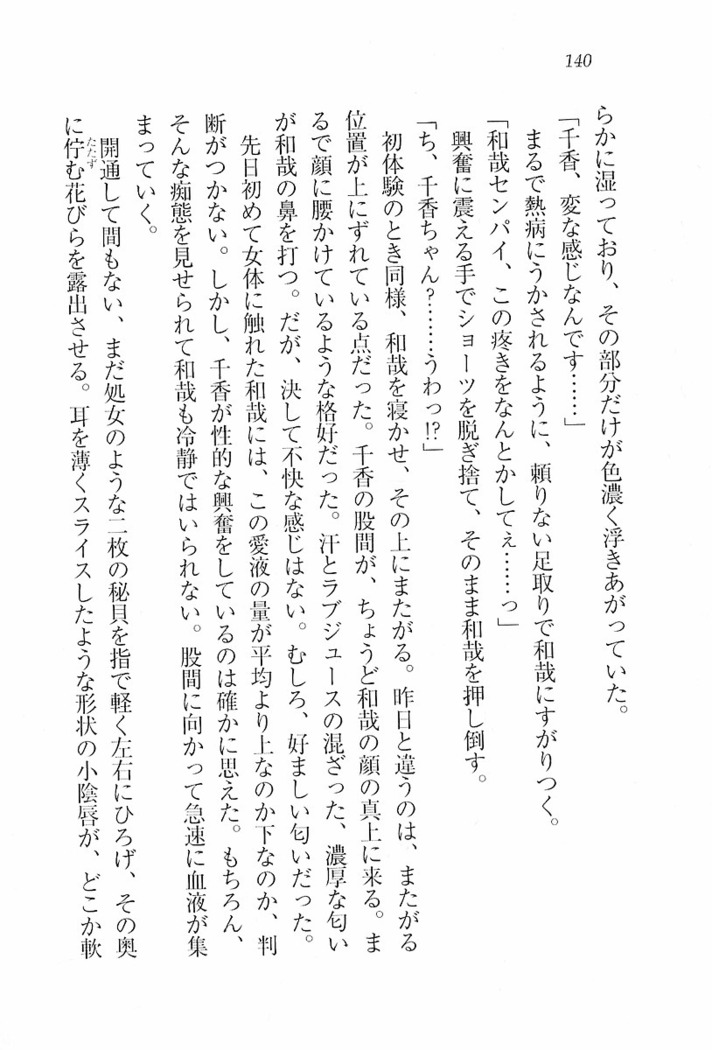 140
らかに湿っており、その部分だけが色濃く浮きあがっていた。
「千香、変な感じなんです……」
まるで熱病にうかされるように、頼りない足取りで和哉にすがりつく。
「和哉センパイ、この疼きをなんとかしてぇ……っ」
興奮に震える手でショーツを脱ぎ捨て、そのまま和哉を押し倒す。
「ち、千香ちゃん？……うわっ!?」
初体験のとき同様、和哉を寝かせ、その上にまたがる。昨日と違うのは、またがる
位置が上にずれている点だった。千香の股間が、ちょうど和哉の顔の真上に来る。ま
るで顔に腰かけているような格好だった。汗とラブジュースの混ざった、濃厚な匂い
が和哉の鼻を打つ。だが、決して不快な感じはない。むしろ、好ましい匂いだった。
先日初めて女体に触れた和哉には、この愛液の量が平均より上なのか下なのか、判
断がつかない。しかし、千香が性的な興奮をしているのは確かに思えた。もちろん、
そんな痴態を見せられて和哉も冷静ではいられない。股間に向かって急速に血液が集
まっていく。
開通して間もない、まだ処女のような二枚の秘貝を指で軽く左右にひろげ、その奥
に佇む花びらを露出させる。耳を薄くスライスしたような形状の小陰唇が、どこか軟